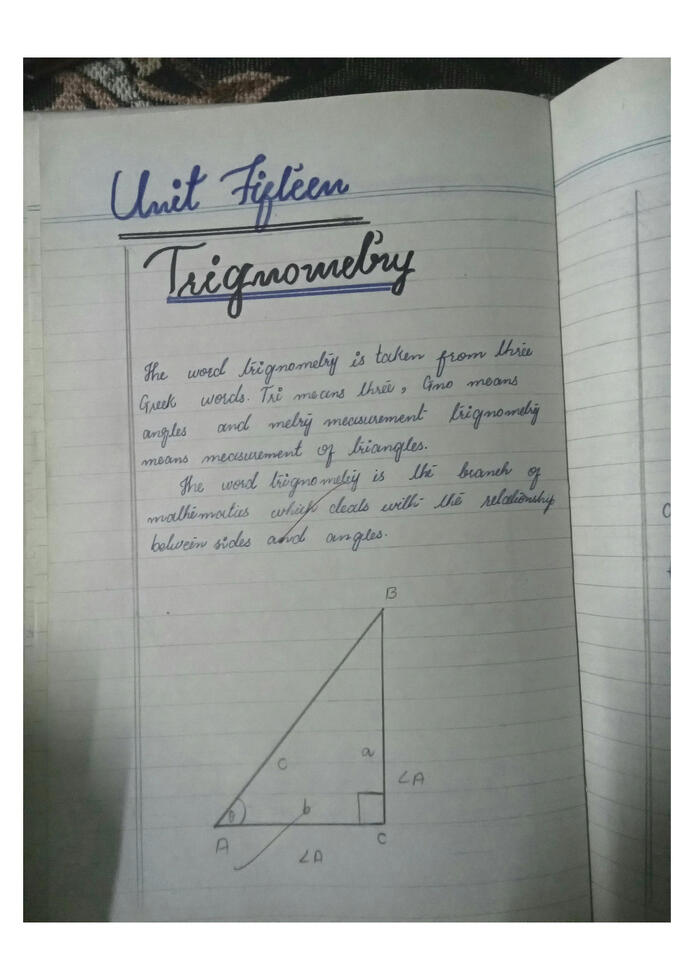 Unit Fifteen
Trignometry
The word trignometry is taken from three
Greek words. Tri means three, Gno means
angles and metry measurement trignometry
means measurement of triangles.
The word trignometry is the branch of
mathematics which deals with the relationship
between sides and angles.
B
c
a
∠A
θ
b
A
C
∠A